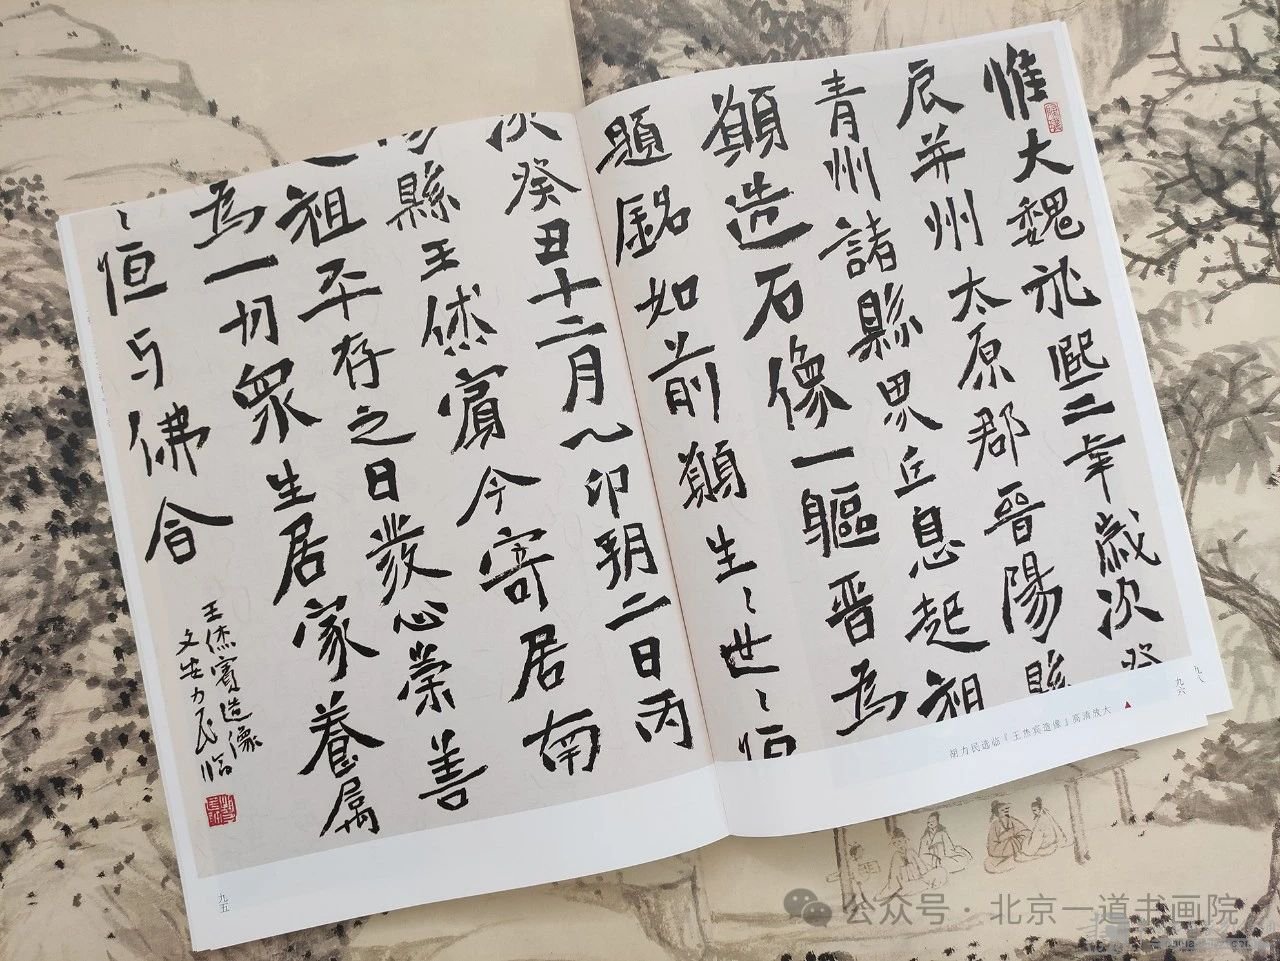 惟大魏永熙二年歲次癸
辰并州太原郡晉陽縣
青州諸縣界丘息起祖
願造石像一軀晉為
題銘如前願生〻世〻恒
次癸丑十二月乙卯朔二日丙
縣王烋賓今寄居南
祖平存之日發心崇善
為一切眾生居家養屬
〻恒与佛合
王烋賓造像
文安力民臨
胡力民选临『王烋宾造像』高清放大
九五
九六
九八
公众号·北京一道书画院